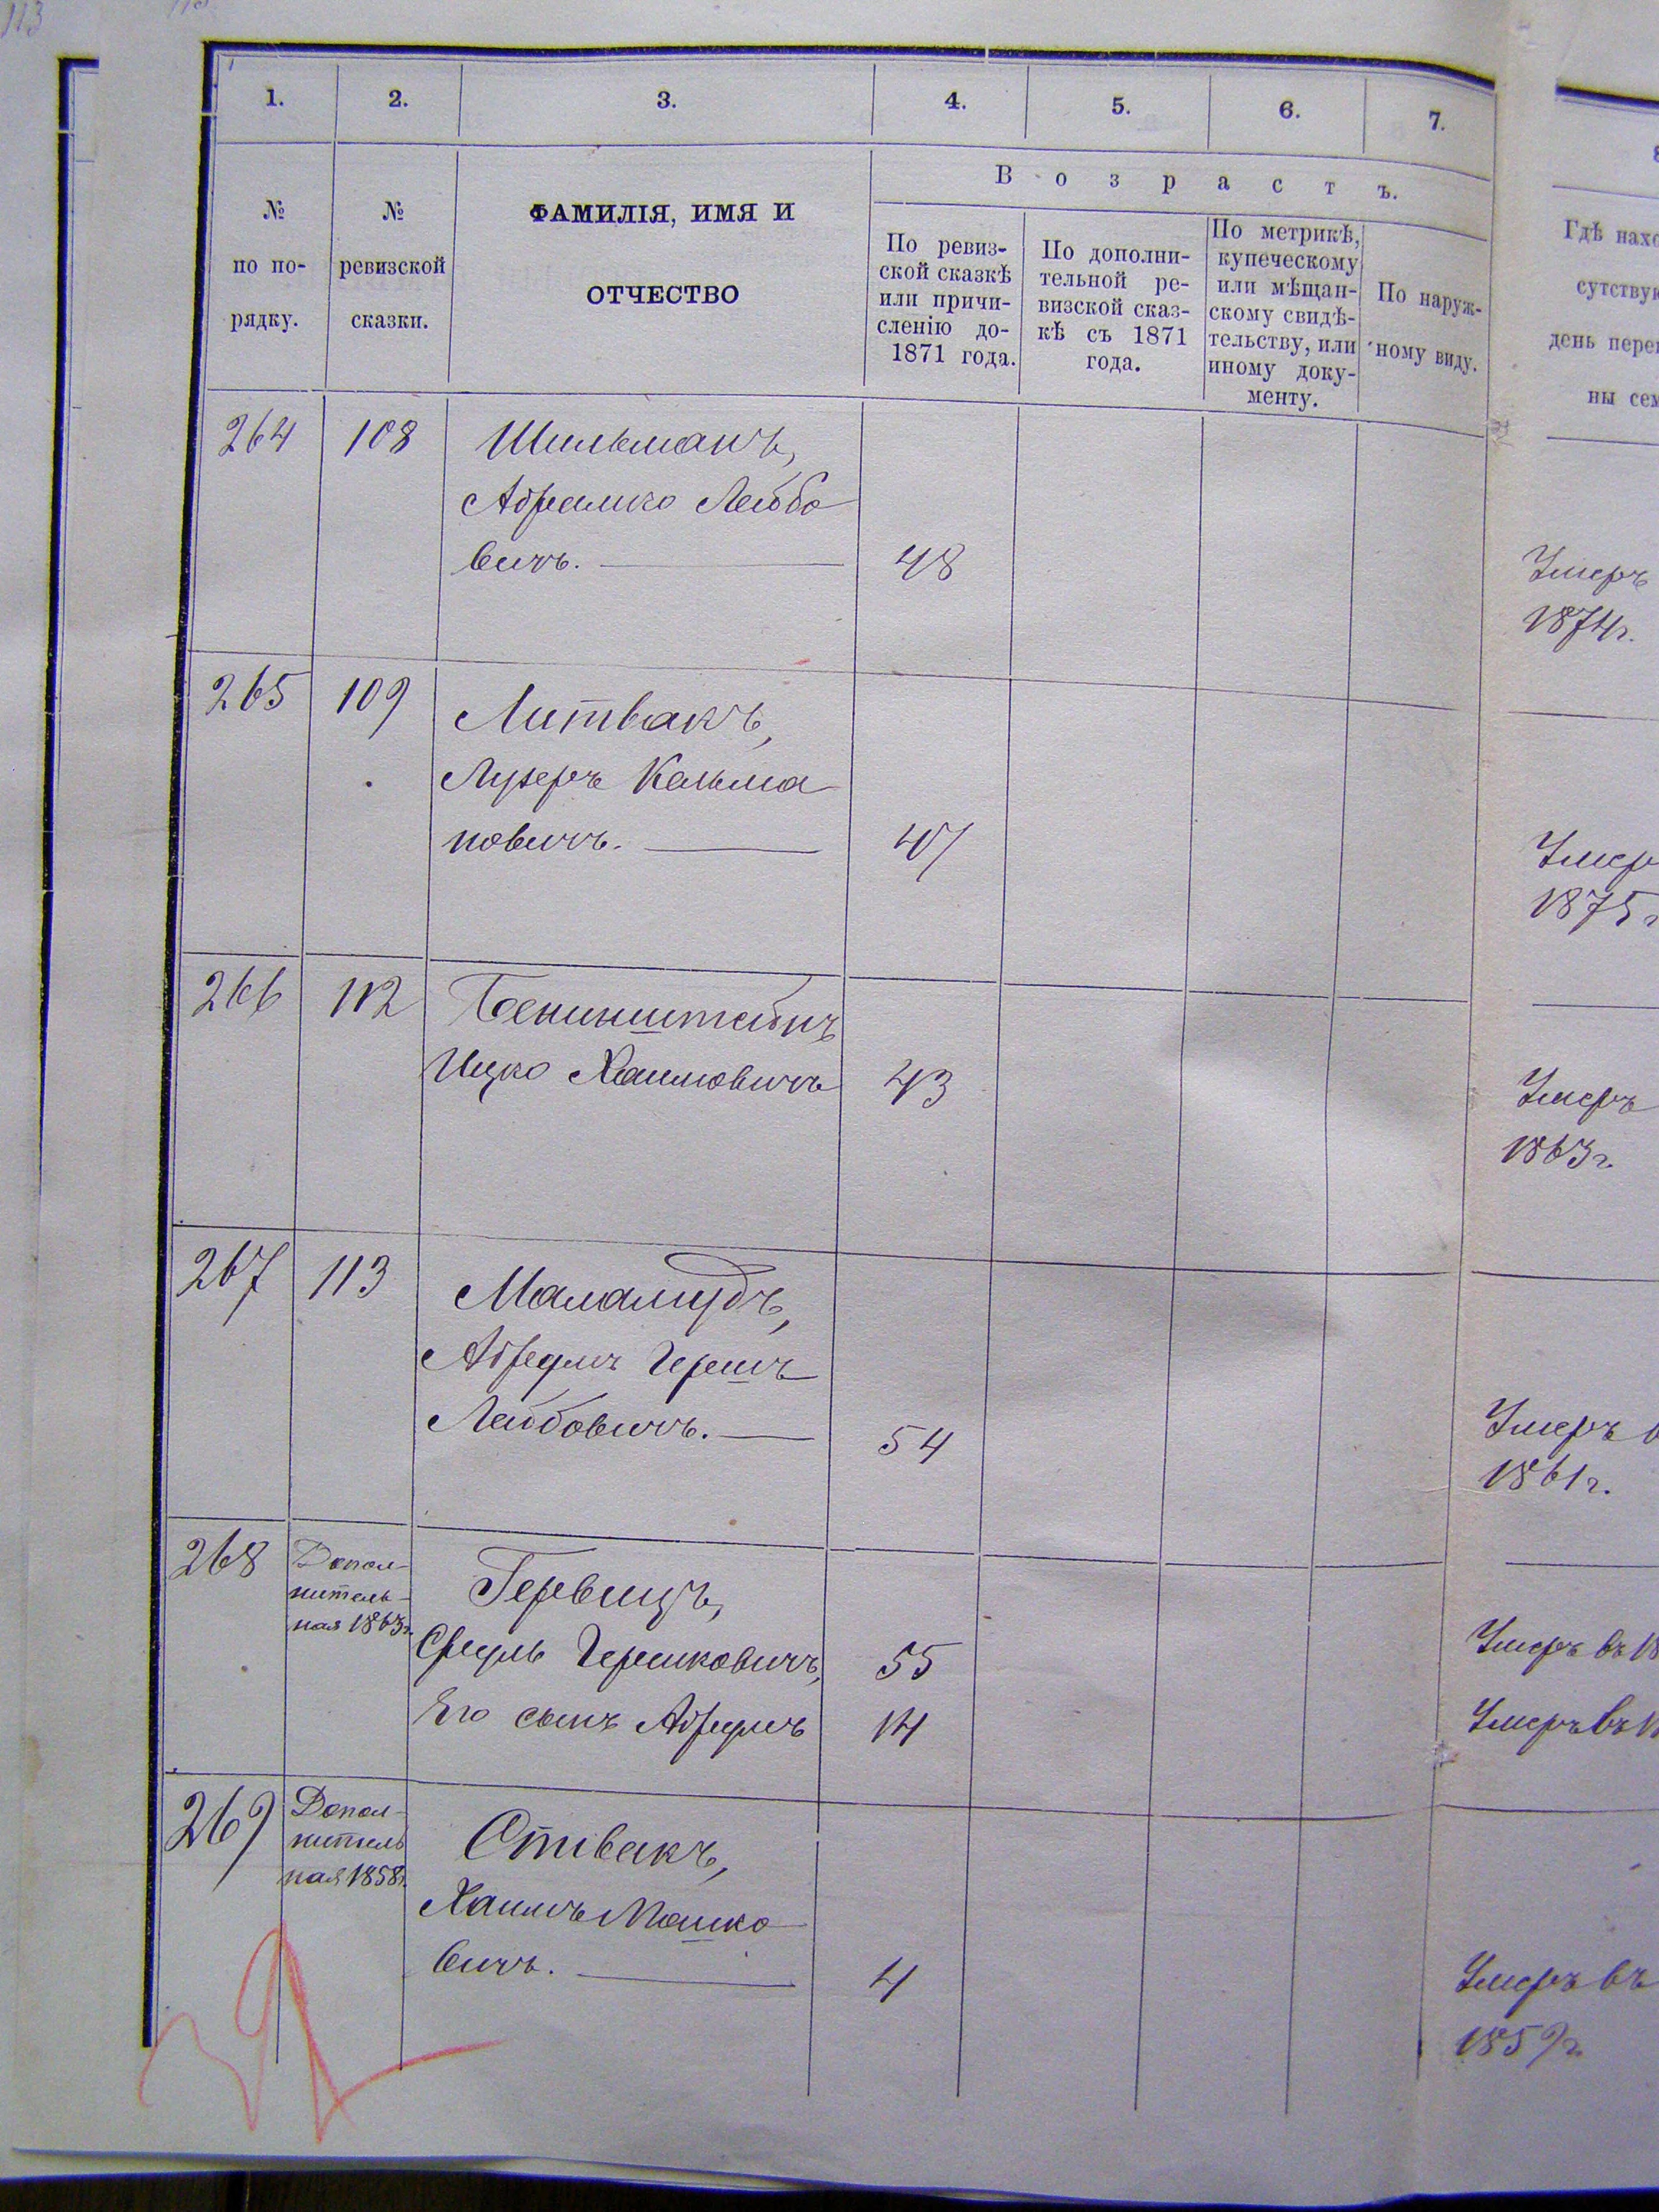 113
1.
2.
3.
4.
5.
6.
7.
В о з р а с т ъ.
№
по по-
рядку.
№
ревизской
сказки.
ФАМИЛІЯ, ИМЯ И
ОТЧЕСТВО
По ревиз-
ской сказкѣ
или причи-
сленію до-
1871 года.
По дополни-
тельной ре-
визской сказ-
кѣ съ 1871
года.
По метрикѣ,
купеческому
или мѣщан-
скому свидѣ-
тельству, или
иному доку-
менту.
По наруж-
ному виду.
Гдѣ нахо
сутствую
день перег
ны сем
264 108 Шильманъ,
Абрамко Лейбо
вичъ. 48
Умеръ
1874г.
265 109 Литвакъ,
Лузеръ Кельма
новичъ. 47
Умер
1875г
266 112 Бенинштейнъ
Ицко Хаимовичъ 43
Умеръ
1863г.
267 113 Маламудъ,
Абрумъ Гершъ
Лейбовичъ. 54
Умеръ в
1861г.
268 Допол-
нитель-
ная 1863г.
Гервицъ,
Сруль Гершковичъ, 55
Его сынъ Абрумъ 14
Умеръ въ 18
Умеръ въ 1
269 Допол-
нитель
ная 1858г.
Спивакъ,
Хаимъ Мошко
вичъ. 4
Умеръ въ
1859г